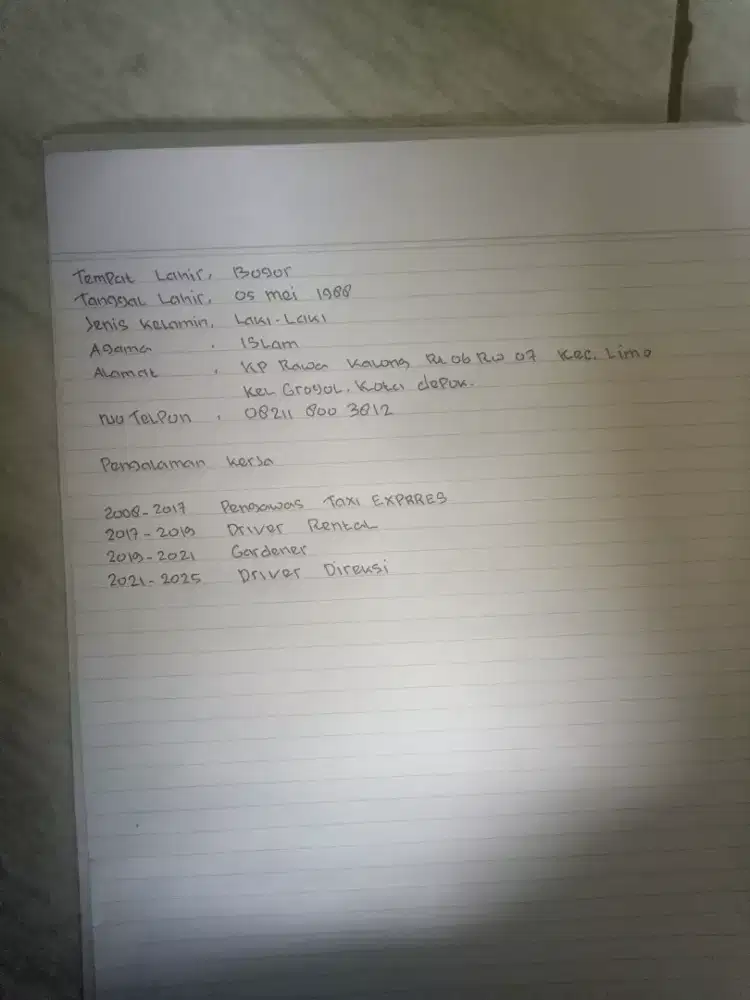 Tempat Lahir, Bogor
Tanggal Lahir, 05 mei 1988
Jenis Kelamin, Laki-Laki
Agama , Islam
Alamat , KP Rawa Kalong Rt 06 Rw 07 Kec. Limo
Kel Grogol. Kota depok.
No Telpon , 08211 800 3812
Pengalaman Kerja
2008-2017 Pengawas Taxi EXPRRES
2017-2019 Driver Rental
2019-2021 Gardener
2021-2025 Driver Direksi